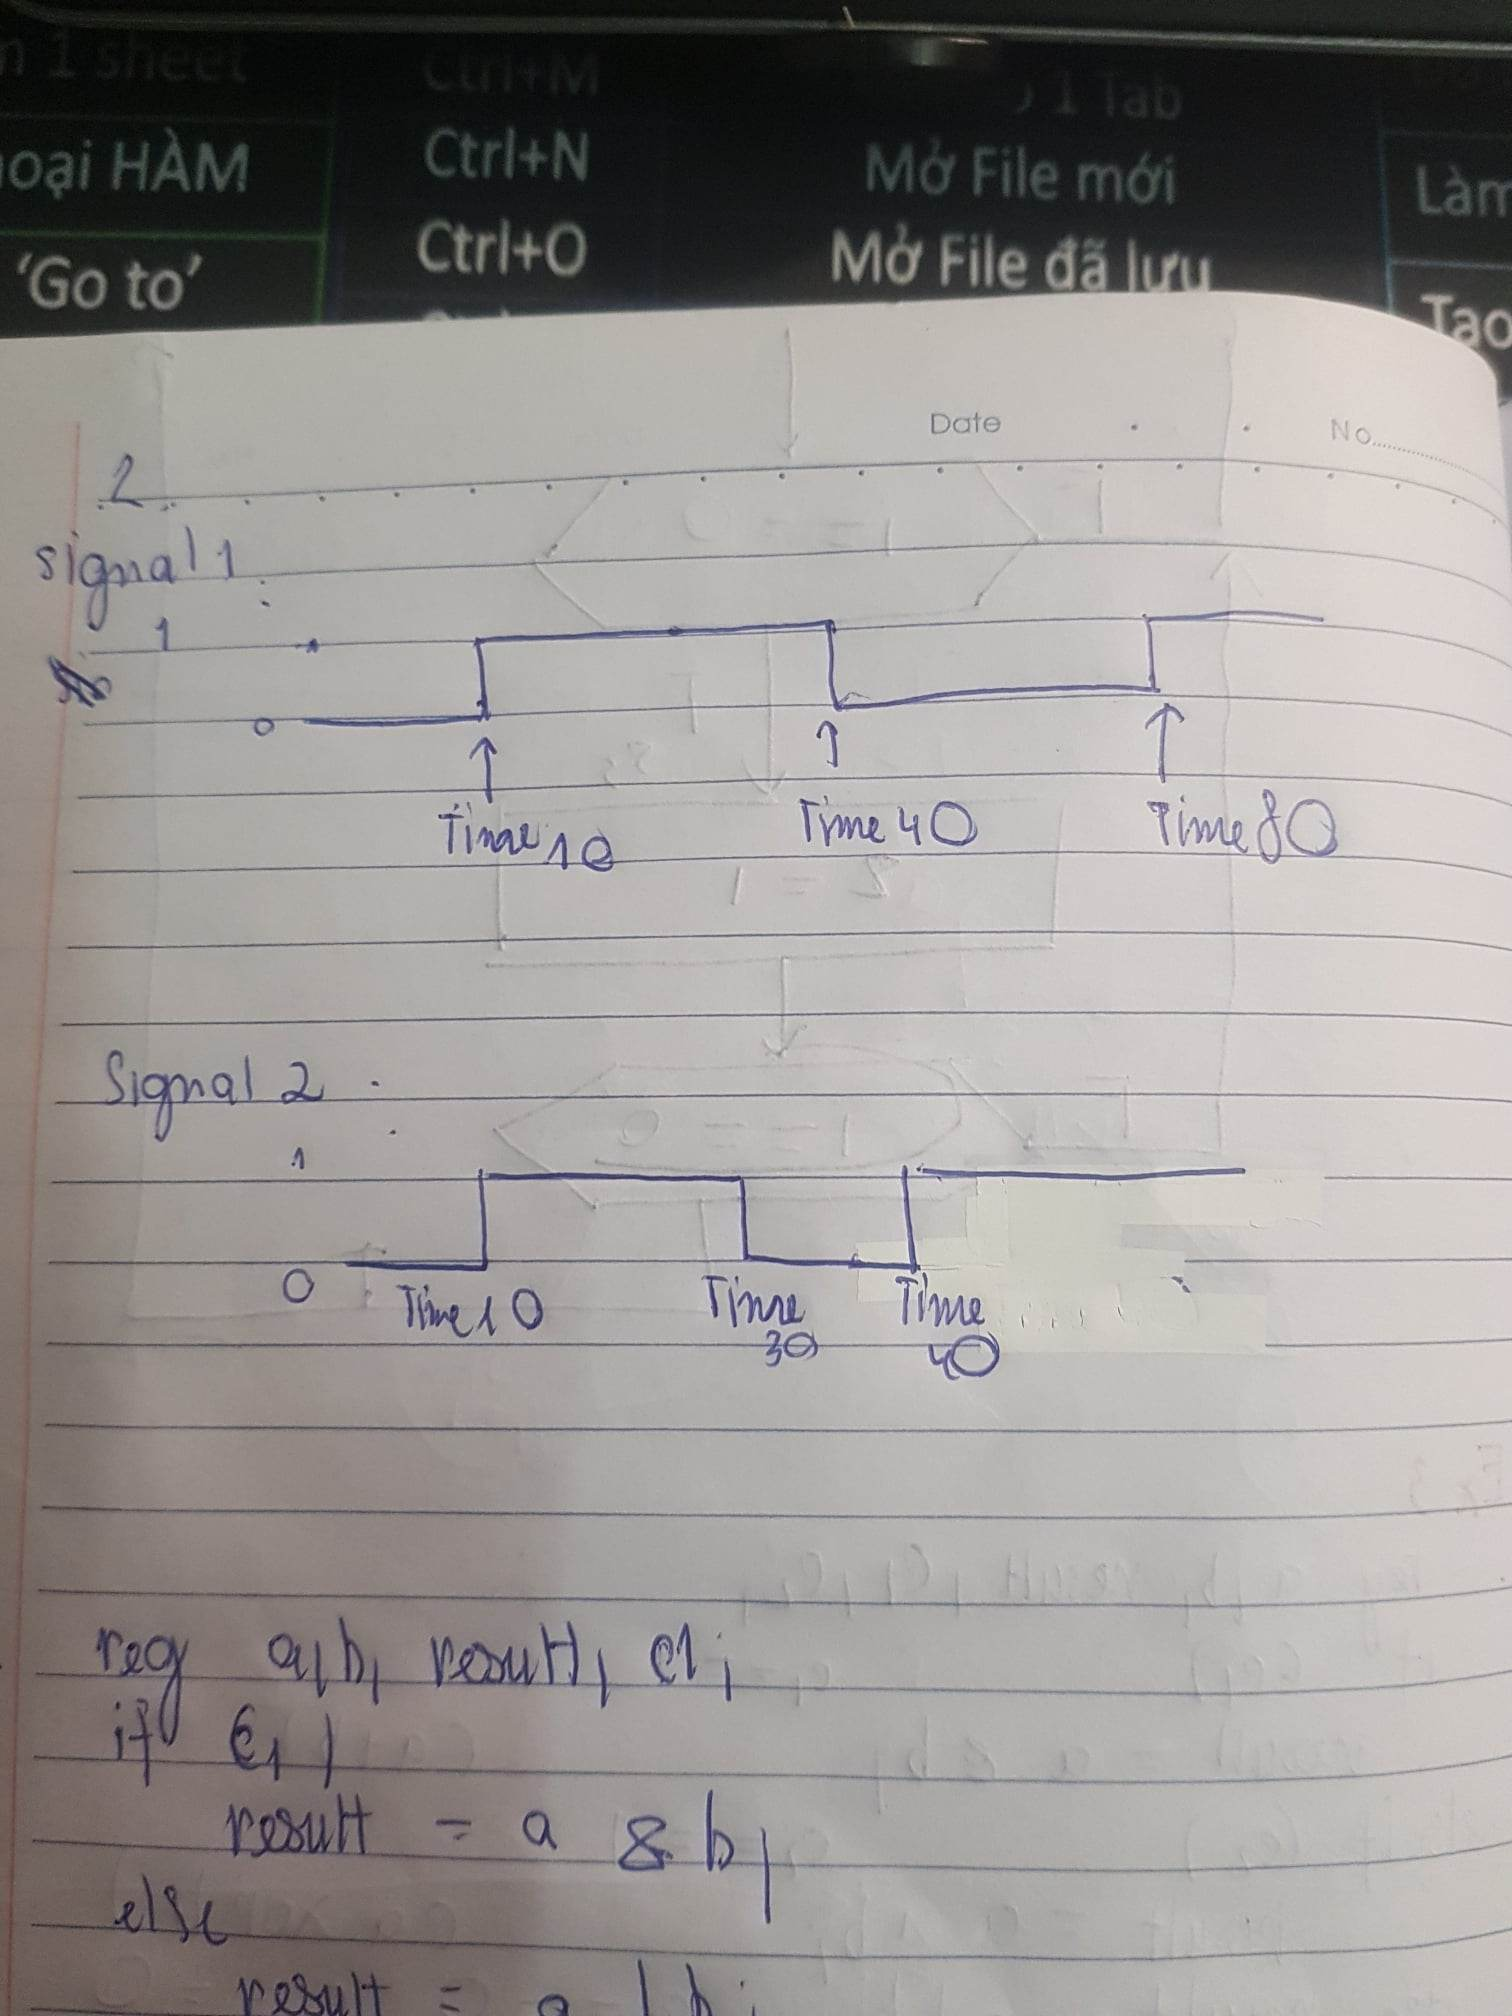 1 sheet
Ctrl+M
1 Tab
oại HÀM
Ctrl+N
Mở File mới
Làm
'Go to'
Ctrl+O
Mở File đã lưu
Tạo
Date
No
2
signal 1 :
1
0
Time 10
Time 40
Time 80
Signal 2 :
1
0
Time 10
Time 30
Time 40
reg a, b, result, c1;
if c1)
result = a & b;
else
result = a | b;